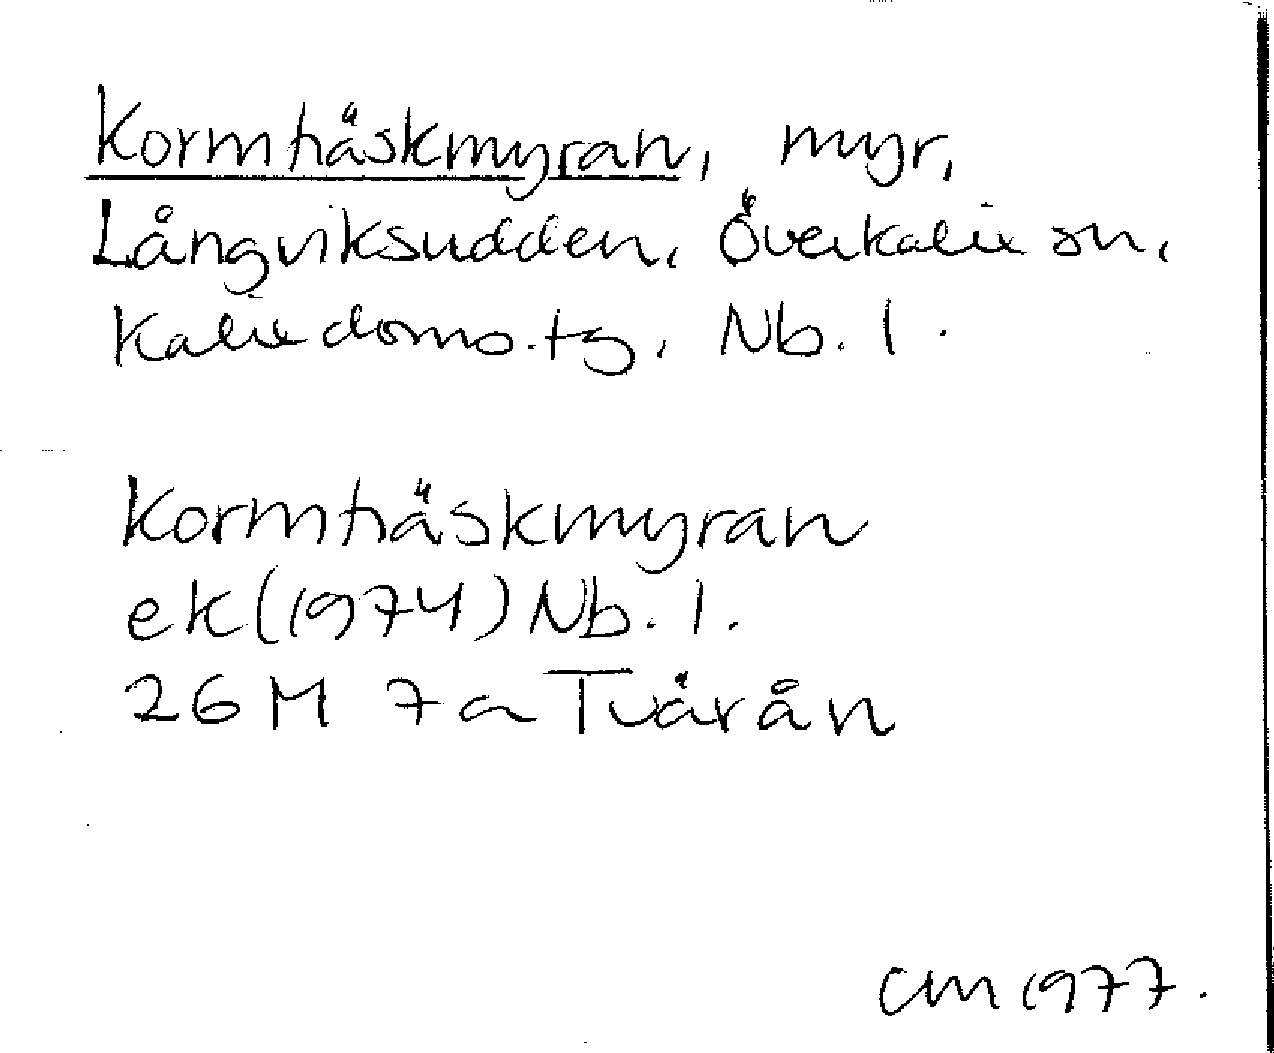 Kormhäskmyran, myr,
Långviksudden, Överkalix sn,
Kalix doms.tg, Nb. l.
Kormhäskmyran
ek (1974) Nb. l.
26 M 7a Tvärån
CM 1977.